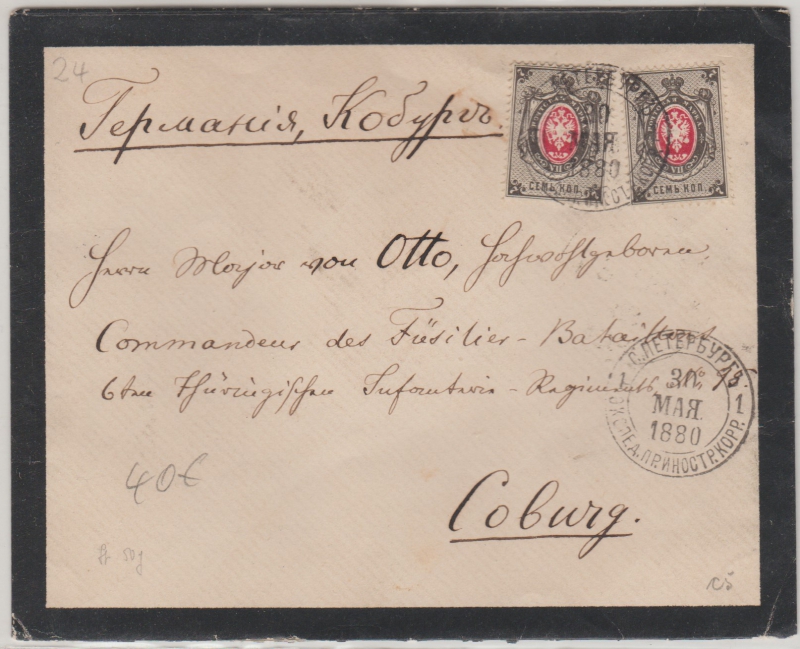 24
Германія, Кобургъ.
СЕМЬ КОП.
СЕМЬ КОП.
30
МАЯ
1880
Herrn Major von Otto, Hochwohlgeboren,
Commandeur des Füsilier-Bataillons
6ten Thüringischen Infanterie-Regiments, No 95.
С.ПЕТЕРБУРГЪ.
30
МАЯ
1880
1 1
ЭКСПЕД.ПР.ИНОСТР.КОРР.
40€
Coburg.